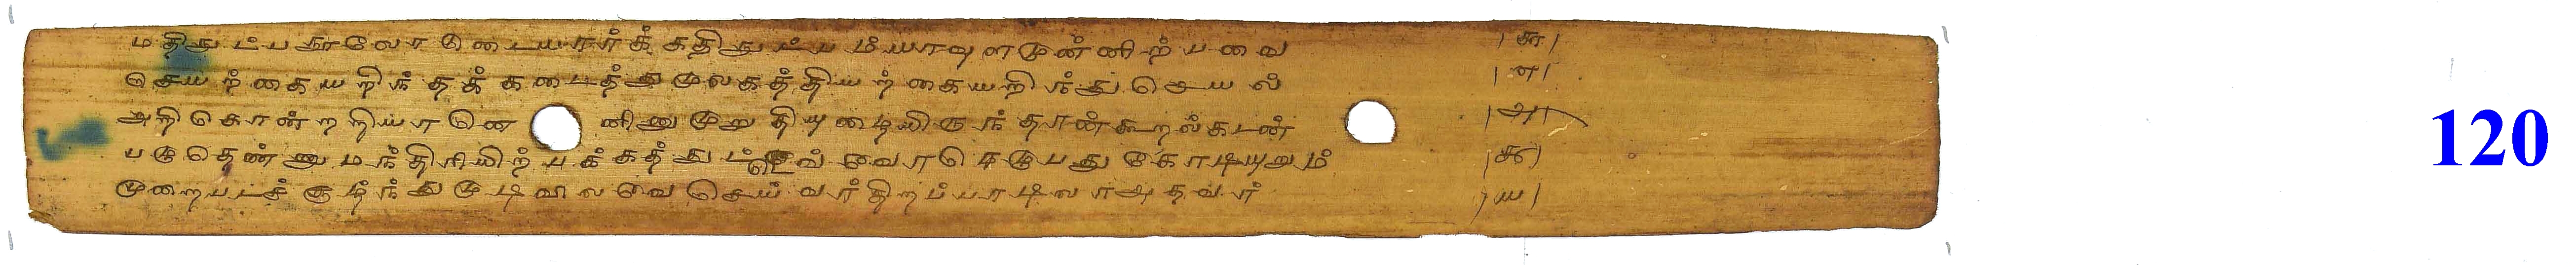 மதிநுட்பநூலோடுடையார்க்கதிநுட்பம்யாவுளமுன்னிற்பவை |௬|
செயற்கையறிந்தக்கடைத்துமுலகத்தியற்கையறிந்துசெயல் |௭|
அறிகொன்றறியானெனினுமுறுதியுழையிருந்தான்கூறல்கடன் |௮|
பழுதெண்ணுமந்திரியிற்பக்கத்துட்டெவ்வேரரெழுபதுகோடியுறும் |௯|
முறைபடச்சூழ்ந்துமுடிவிலவேசெய்வர்திறப்பாடிலாஅதவர் |௰|
120